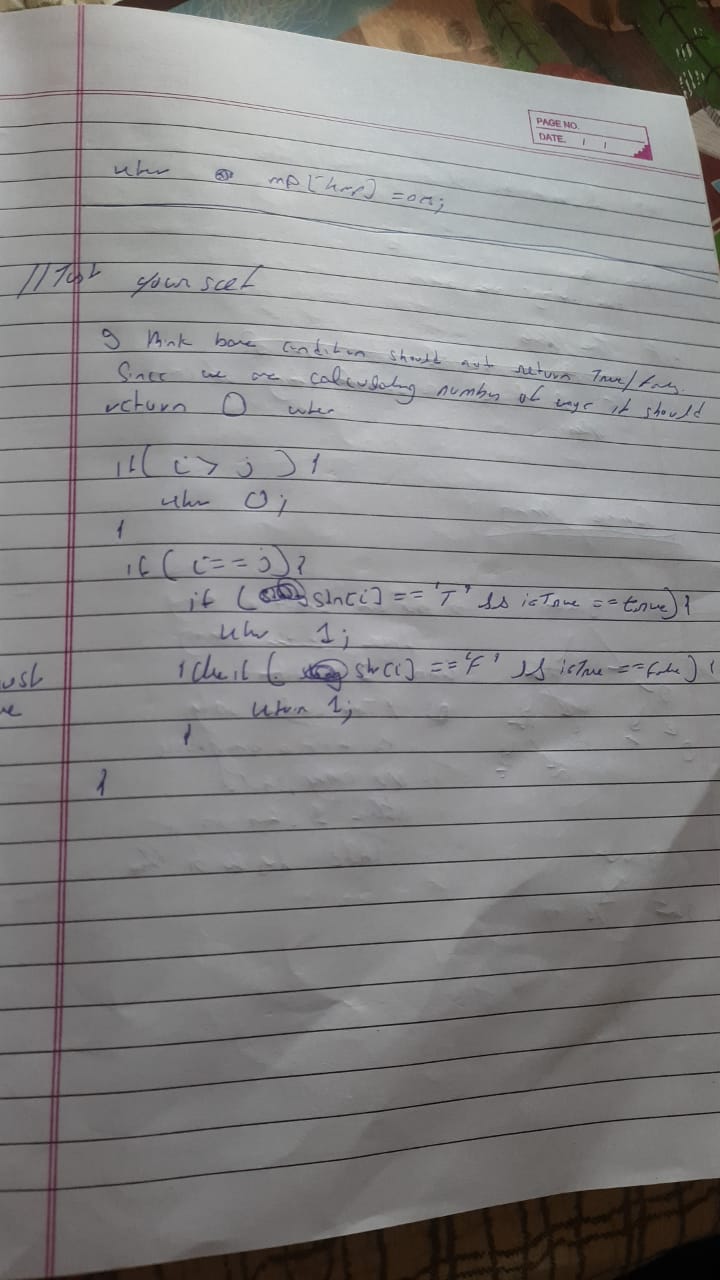 PAGE NO.
DATE. / /
return mp[tmp] = ans;
// Test yourself
I think base condition should not return True/False.
Since we are calculating number of ways it should
return 0 when
if( i > j ) {
return 0;
}
if( i == j ) {
if ( str[i] == 'T' && isTrue == true) {
return 1;
} else if ( str[i] == 'F' && isTrue == false) {
return 1;
}
}
ust